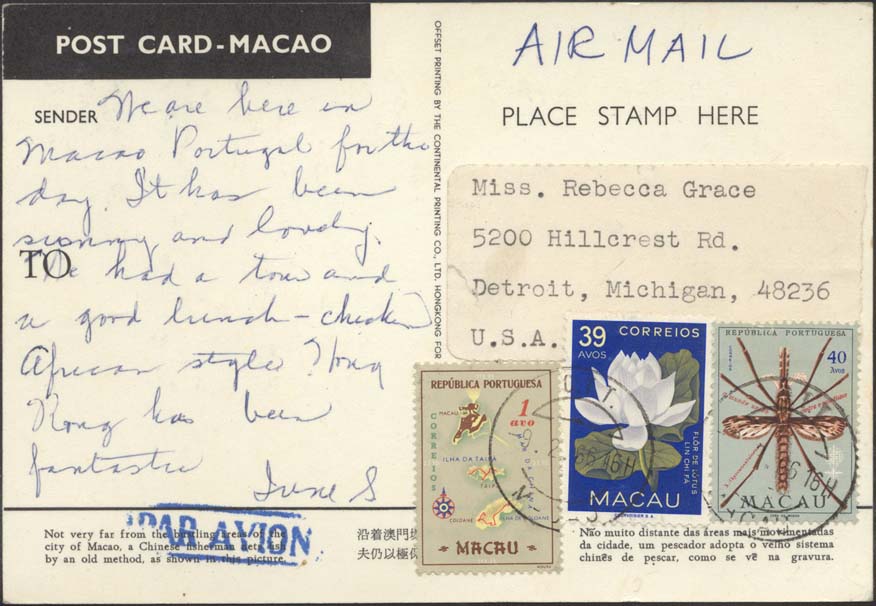 POST CARD-MACAO
AIR MAIL
PLACE STAMP HERE
SENDER We are here in
Macao Portugal for the
day. It has been
sunny and lovely.
TO
We had a tour and
a good lunch - chicken
African style. Hong
Kong has been
fantastic
June S
OFFSET PRINTING BY THE CONTINENTAL PRINTING CO., LTD. HONGKONG FOR
Miss. Rebecca Grace
5200 Hillcrest Rd.
Detroit, Michigan, 48236
U.S.A.
REPÚBLICA PORTUGUESA
1
avo
CORREIOS
MACAU
ILHA DA TAIPA
TAIPA
COLOANE
ILHA DE COLOANE
MACAU
39
AVOS
CORREIOS
FLÔR DE LÓTUS
LIN CHI FÁ
MACAU
REPÚBLICA PORTUGUESA
40
Avos
MACAU
66 16H
66 16H
PAR AVION
Not very far from the bustling areas of the
city of Macao, a Chinese fisherman
by an old method, as shown in this picture.
沿着澳門
夫仍以極
Não muito distante das áreas mais movimentadas
da cidade, um pescador adopta o velho sistema
chinês de pescar, como se vê na gravura.